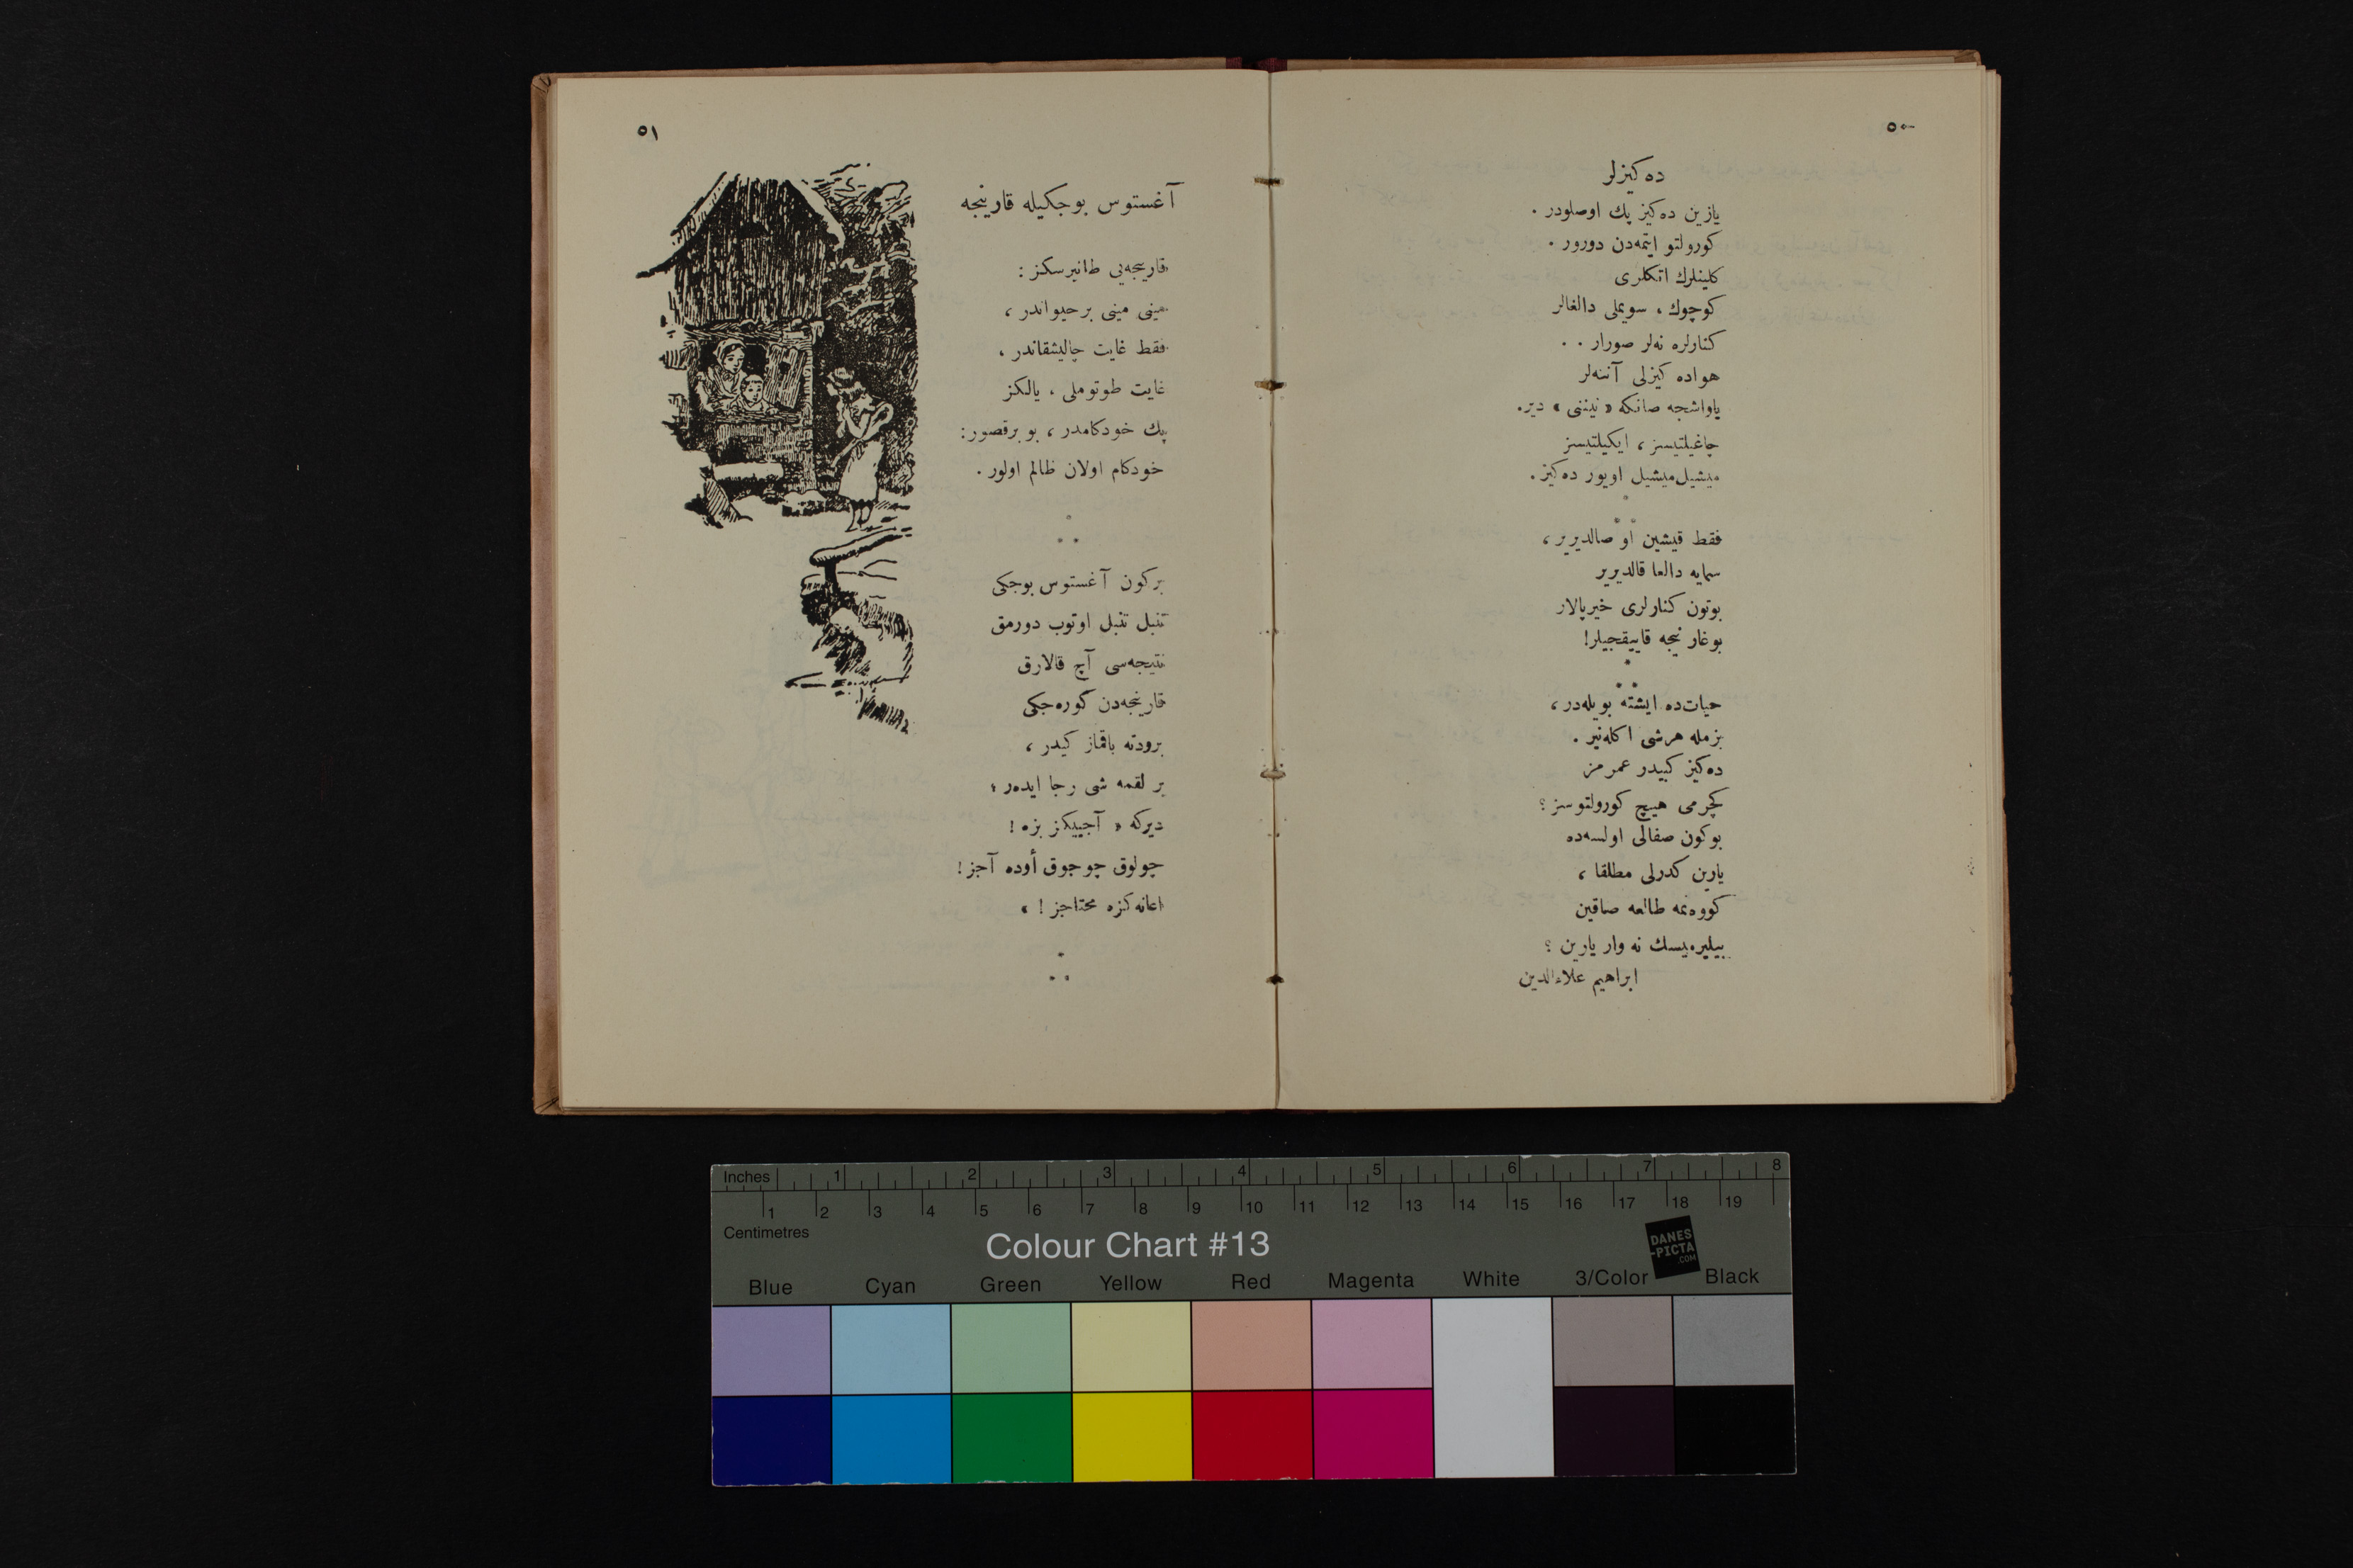 ٥٠
ده‌كيزلر
يازين ده‌كيز پك اوصلودر .
كورولتو ايتمه‌دن دورور .
كلينلرك اتكلرى
كوچوك ، سويملى دالغالر
كنارلره نه‌لر صورار . .
هواده كيزلى آننه‌لر
ياواشجه صانكه « نيننى » دير.
چاغيلتيسز ، ايكيلتيسز
ميشيل ميشيل اويور ده‌كيز .
فقط قيشين او صالديرير ،
سمايه دالغا قالديرير
بوتون كنارلرى خيرپالار
بوغار نيجه قاييقجيلر!
حيات‌ده ايشته بويله‌در ،
بزمله هرشى اكله‌نير .
ده‌كيز كبيدر عمرمز
كچرمى هيچ كورولتوسز ؟
بوكون صفالى اولسه‌ده
يارين كدرلى مطلقا ،
كووه‌نمه طالعه صاقين
بيليرميسك نه وار يارين ؟
ابراهيم علاءالدين
٥١
آغستوس بوجكيله قارينجه
قارينجه‌يى طانيرسكز :
مينى مينى بر حيواندر ،
فقط غايت چاليشقاندر ،
غايت طوتوملى ، يالكز
پك خودكامدر ، بو برقصور:
خودكام اولان ظالم اولور .
بركون آغستوس بوجكى
تنبل تنبل اوتوب دورمق
نتيجه‌سى آچ قالارق
قارينجه‌دن كوره‌جكى
برودته باقماز كيدر ،
بر لقمه شى رجا ايده‌ر ؛
ديركه « آجييكز بزه !
چولوق چوجوق أوده آجز !
اعانه‌كزه محتاجز ! »
Inches 1 2 3 4 5 6 7 8
1 2 3 4 5 6 7 8 9 10 11 12 13 14 15 16 17 18 19
Centimetres
Colour Chart #13
DANES
-PICTA
.COM
Blue Cyan Green Yellow Red Magenta White 3/Color Black